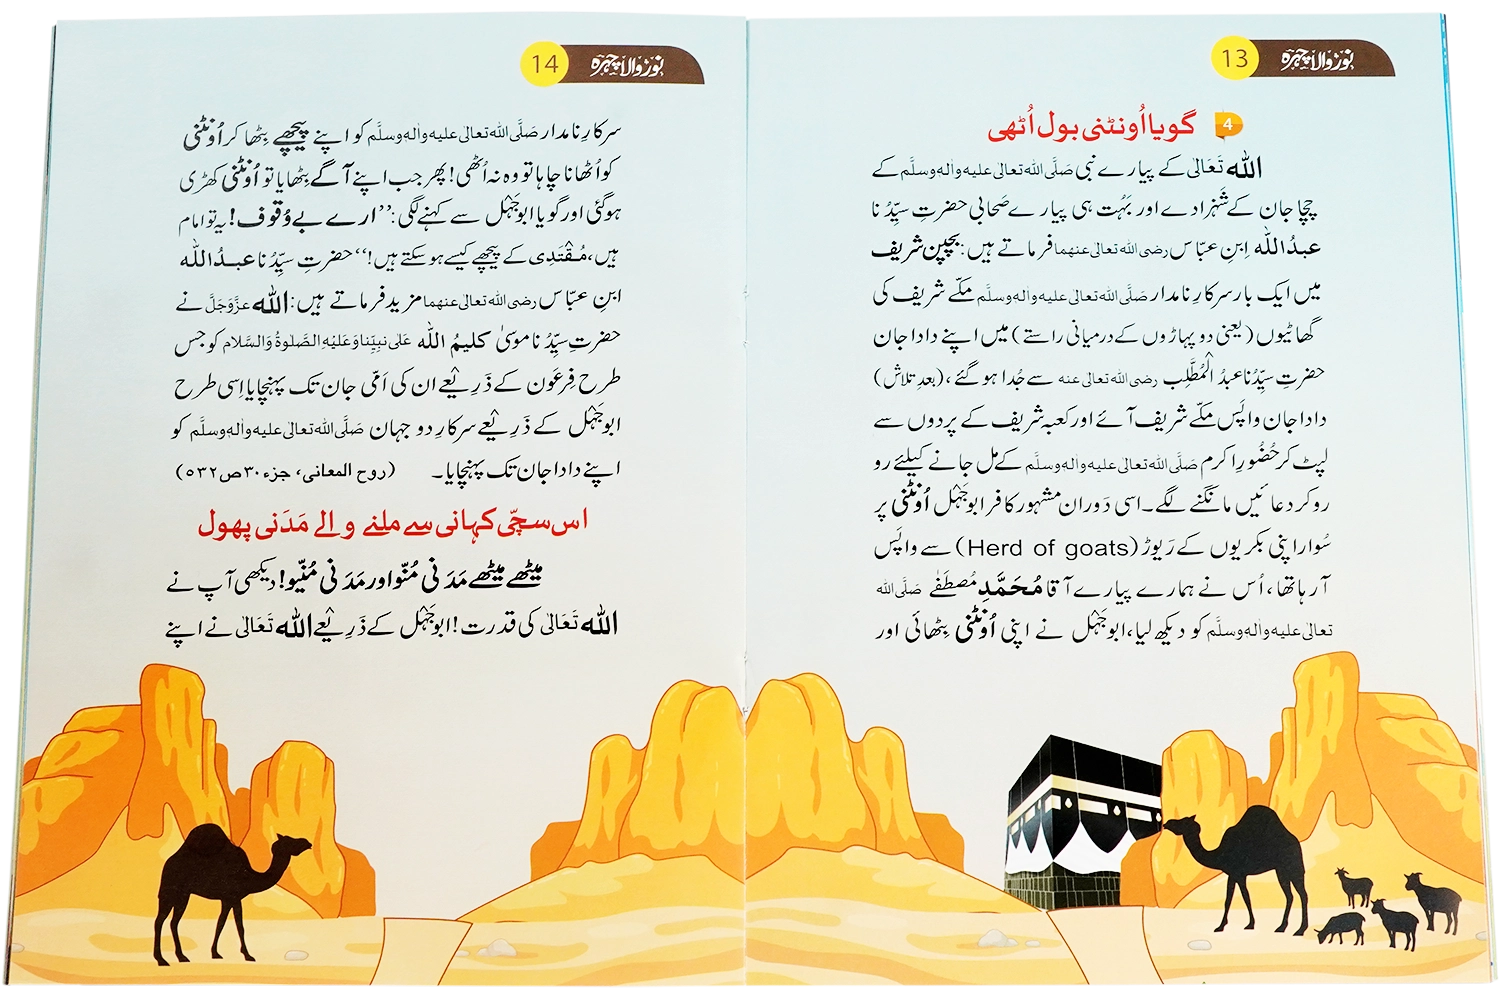 نورْوالاچہرہ
13
4 گویا اُونٹنی بول اُٹھی
اللہ تَعَالٰی کے پیارے نبی صَلَّی اللہ تعالٰی علیہ واٰلہٖ وسلَّم کے
چچا جان کے شہزادے اور بَہُت ہی پیارے صَحابی حضرتِ سیِّدُنا
عبدُ اللہ اِبنِ عبّاس رضی اللہ تعالٰی عنہما فرماتے ہیں: بچپن شریف
میں ایک بار سرکارِ نامدار صَلَّی اللہ تعالٰی علیہ واٰلہٖ وسلَّم مکّے شریف کی
گھاٹیوں (یعنی دو پہاڑوں کے درمیانی راستے) میں اپنے دادا جان
حضرتِ سیِّدُنا عبدُ الْمُطَّلِب رضی اللہ تعالٰی عنہ سے جُدا ہوگئے، (بعدِ تلاش)
دادا جان واپَس مکّے شریف آئے اور کعبہ شریف کے پردوں سے
لپٹ کر حُضُورِ اکرم صَلَّی اللہ تعالٰی علیہ واٰلہٖ وسلَّم کے مل جانے کیلئے رو
رو کر دعائیں مانگنے لگے۔ اسی دَوران مشہور کافر ابو جَہْل اُونٹنی پر
سُوار اپنی بکریوں کے رَیوڑ (Herd of goats) سے واپَس
آ رہا تھا، اُس نے ہمارے پیارے آقا مُحَمَّدِ مُصطَفٰے صَلَّی اللہ
تعالٰی علیہ واٰلہٖ وسلَّم کو دیکھ لیا، ابو جَہْل نے اپنی اُونٹنی بِٹھائی اور
نورْوالاچہرہ
14
سرکارِ نامدار صَلَّی اللہ تعالٰی علیہ واٰلہٖ وسلَّم کو اپنے پیچھے بِٹھا کر اُونٹنی
کو اُٹھانا چاہا تو وہ نہ اُٹھی! پھر جب اپنے آگے بِٹھایا تو اُونٹنی کھڑی
ہوگئی اور گویا ابو جَہْل سے کہنے لگی: ’’ارے بے وُقوف! یہ تو امام
ہیں، مُقْتَدِی کے پیچھے کیسے ہو سکتے ہیں!‘‘ حضرتِ سیِّدُنا عبدُ اللہ
ابنِ عبّاس رضی اللہ تعالٰی عنہما مزید فرماتے ہیں: اللہ عزَّوَجَلَّ نے
حضرتِ سیِّدُنا موسیٰ کلیمُ اللہ عَلٰی نَبِیِّنا وَعَلَیْہِ الصَّلٰوۃُ وَالسَّلام کو جس
طرح فِرعَون کے ذَرِیْعے ان کی اَمّی جان تک پہنچایا اِسی طرح
ابو جَہْل کے ذَرِیْعے سرکارِ دو جہان صَلَّی اللہ تعالٰی علیہ واٰلہٖ وسلَّم کو
اپنے دادا جان تک پہنچایا۔ (روح المعانی، جزء ۳۰ ص ۵۳۲)
اس سچّی کہانی سے ملنے والے مَدَنی پھول
میٹھے میٹھے مَدَنی مُنّو اور مَدَنی مُنّیو! دیکھی آپ نے
اللہ تَعَالٰی کی قدرت! ابو جَہْل کے ذَرِیْعے اللہ تَعَالٰی نے اپنے